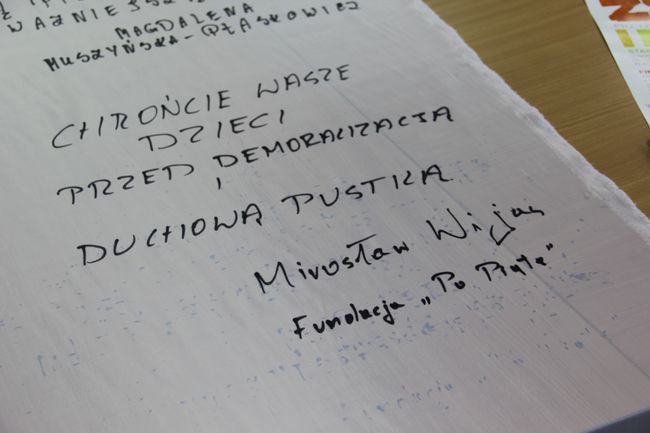 WAŻNIE
MAGDALENA
MUSZYŃSKA-PŁASKOWICZ
CHROŃCIE WASZE
DZIECI
PRZED DEMORALIZACJĄ
I
DUCHOWĄ PUSTKĄ
Mirosław Wijas
Fundacja „Po Piąte"